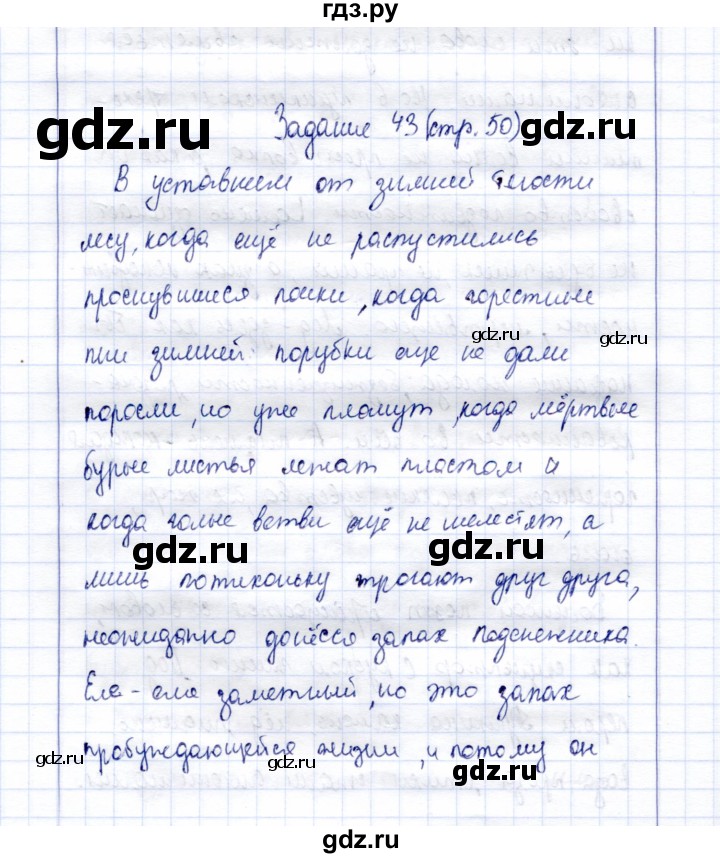 гдз.ру
Задание 43 (стр. 50)
В уставшем от зимней тягости
лесу, когда ещё не распустились
проснувшиеся почки, когда горестные
пни зимней порубки еще не дали
поросли, но уже плачут, когда мёртвые
бурые листья лежат пластом и
когда голые ветви ещё не шелестят, а
лишь потихоньку трогают друг друга,
неожиданно донёсся запах подснежника.
Еле-еле заметный, но это запах
пробуждающейся жизни, и потому он
gdz.ru
gdz.ru
gdz.ru
gdz.ru
gdz.ru
gdz.ru
gdz.ru
gdz.ru
gdz.ru
gdz.ru